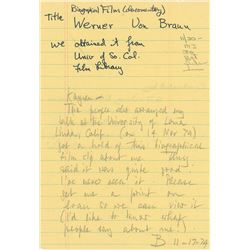 Biographical Films (documentary)
Title Werner Von Braun
we obtained it from
Univ of So. Cal.
Film Library
The people who arranged my
talk at the University of Loma
Linda, Calif. (on 14 Nov 74)
got a hold of this biographical
film clip about me. They
said it was quite good.
I've never seen it. Please
let me a print on
loan so we can view it
(I'd like to know what
people say about me!)
B 11-17-74